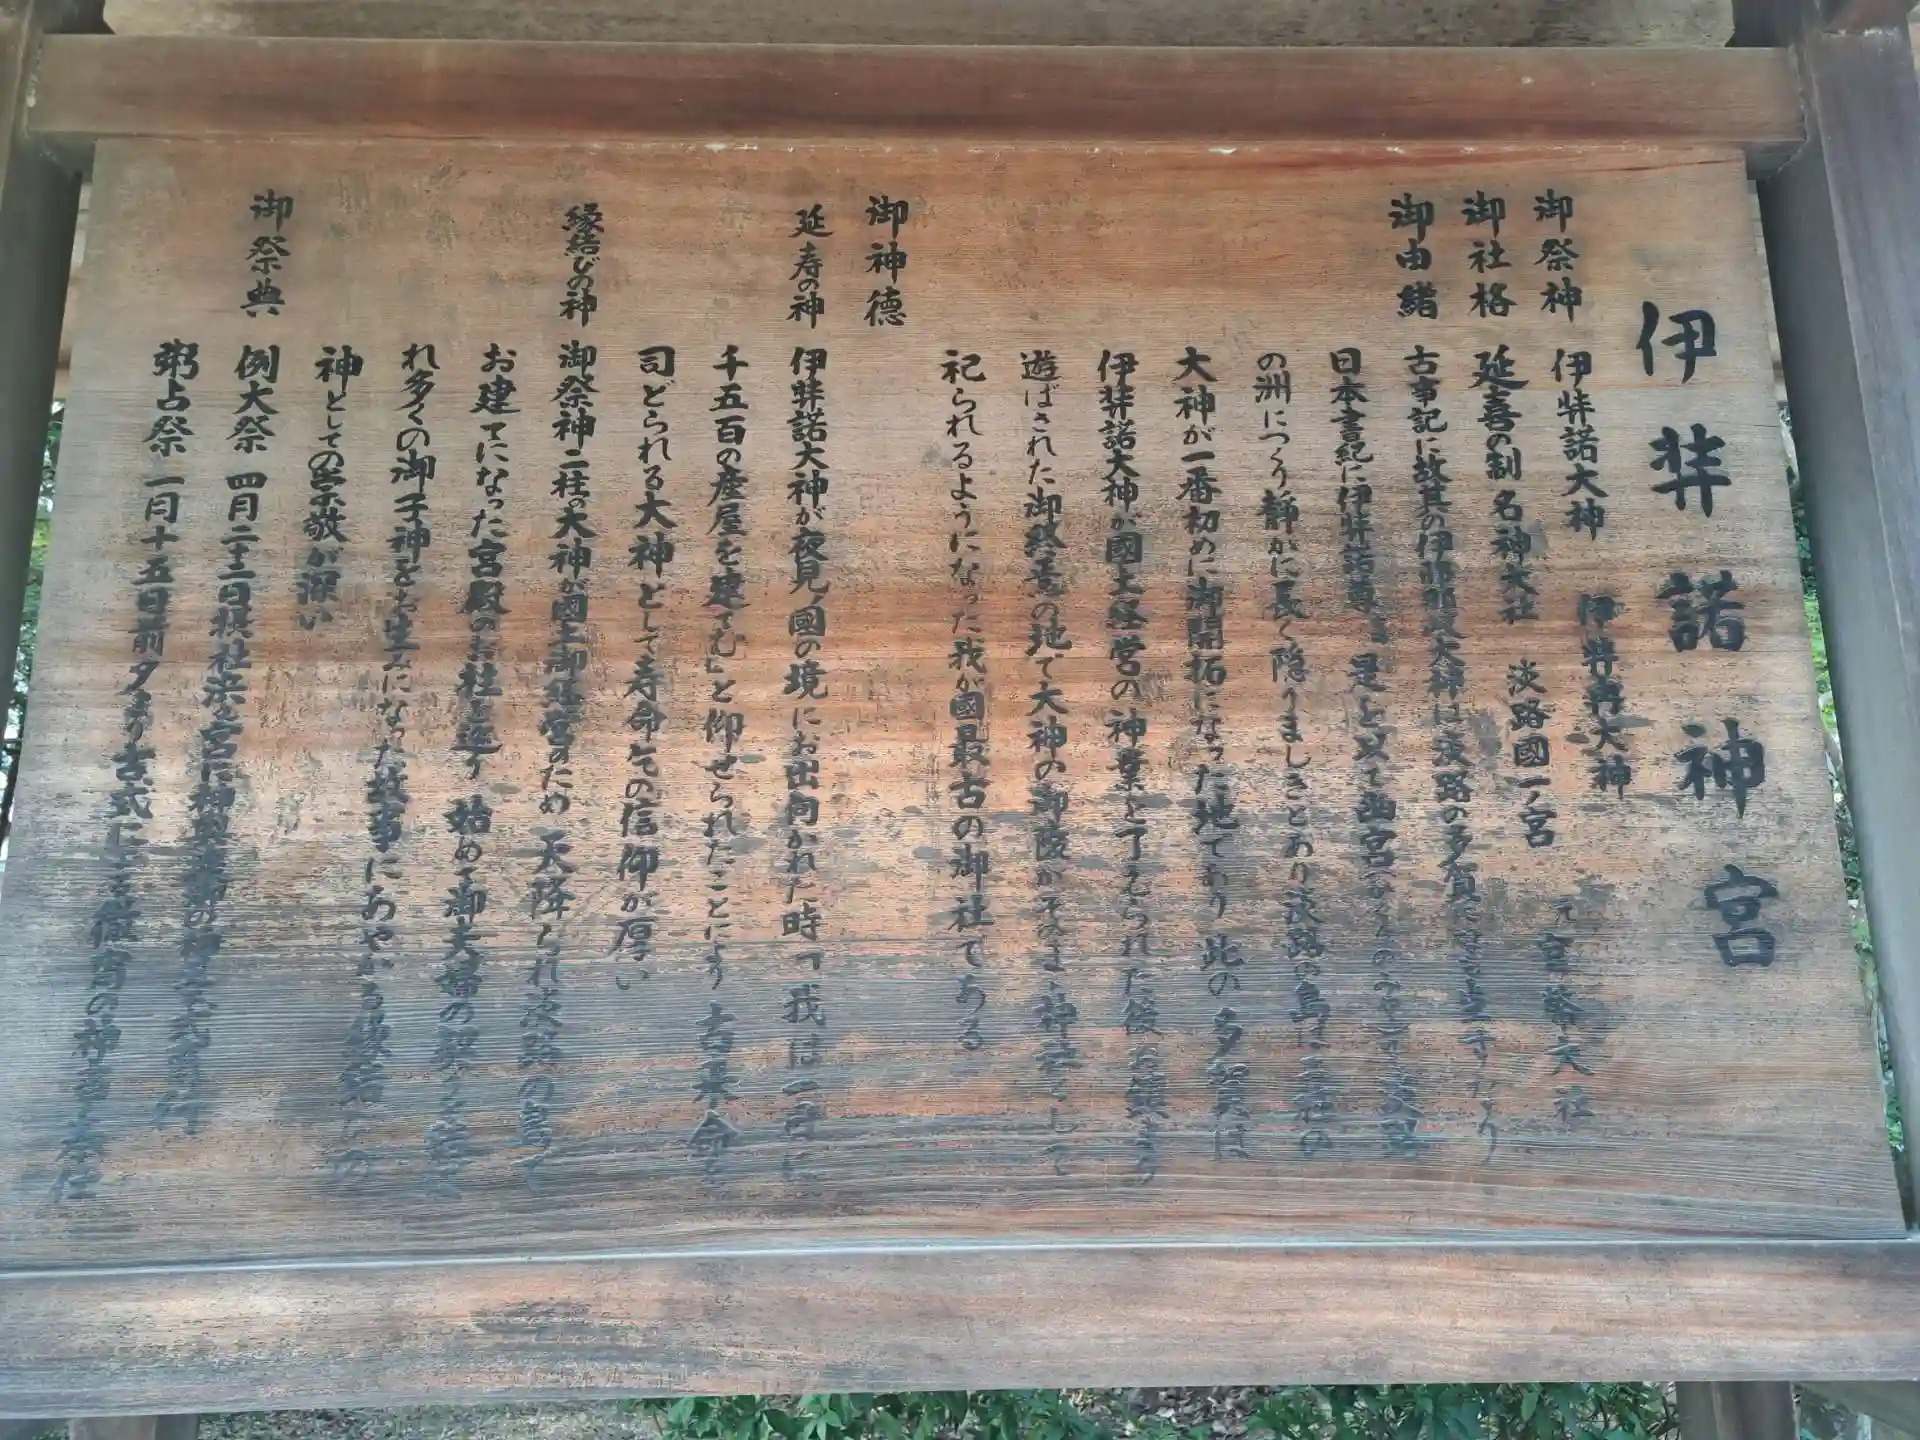 伊弉諾神宮
御祭神 伊弉諾大神 伊弉冉大神
御社格 延喜の制 名神大社 淡路國一ノ宮 元官幣大社
御由緒 古事記に故其の伊邪那岐大神は淡路の多賀に
日本書紀に伊弉諾尊 是を以て幽宮
の洲につくり静かに長く隠りましきとあり淡路の島は
大神が一番初めに御開拓になった地であり 此の 多賀は
伊弉諾大神が國土経営の神業を了えられた後お鎮まり
遊ばされた御終焉の地で大神の御陵がそのまゝ神社として
祀られるようになった我が國最古の御社である
御神徳
延寿の神 伊弉諾大神が夜見國の境にお出向かれた時「我は一日に
千五百の産屋を建てむ」と仰せられたことにより 古来命を
司どられる大神として寿命としての信仰が厚い
縁結びの神 御祭神二柱の大神が國土御経営のため 天降られ淡路の島で
お建てになった宮殿のお社を造り 始めて御夫婦の契りを
れ多くの御子神をお生みになった故事にあやかる縁結びの
神としての崇敬が深い
御祭典 例大祭 四月二十二日
粥占祭 一月十五日前夕より古式による 神事を奉仕